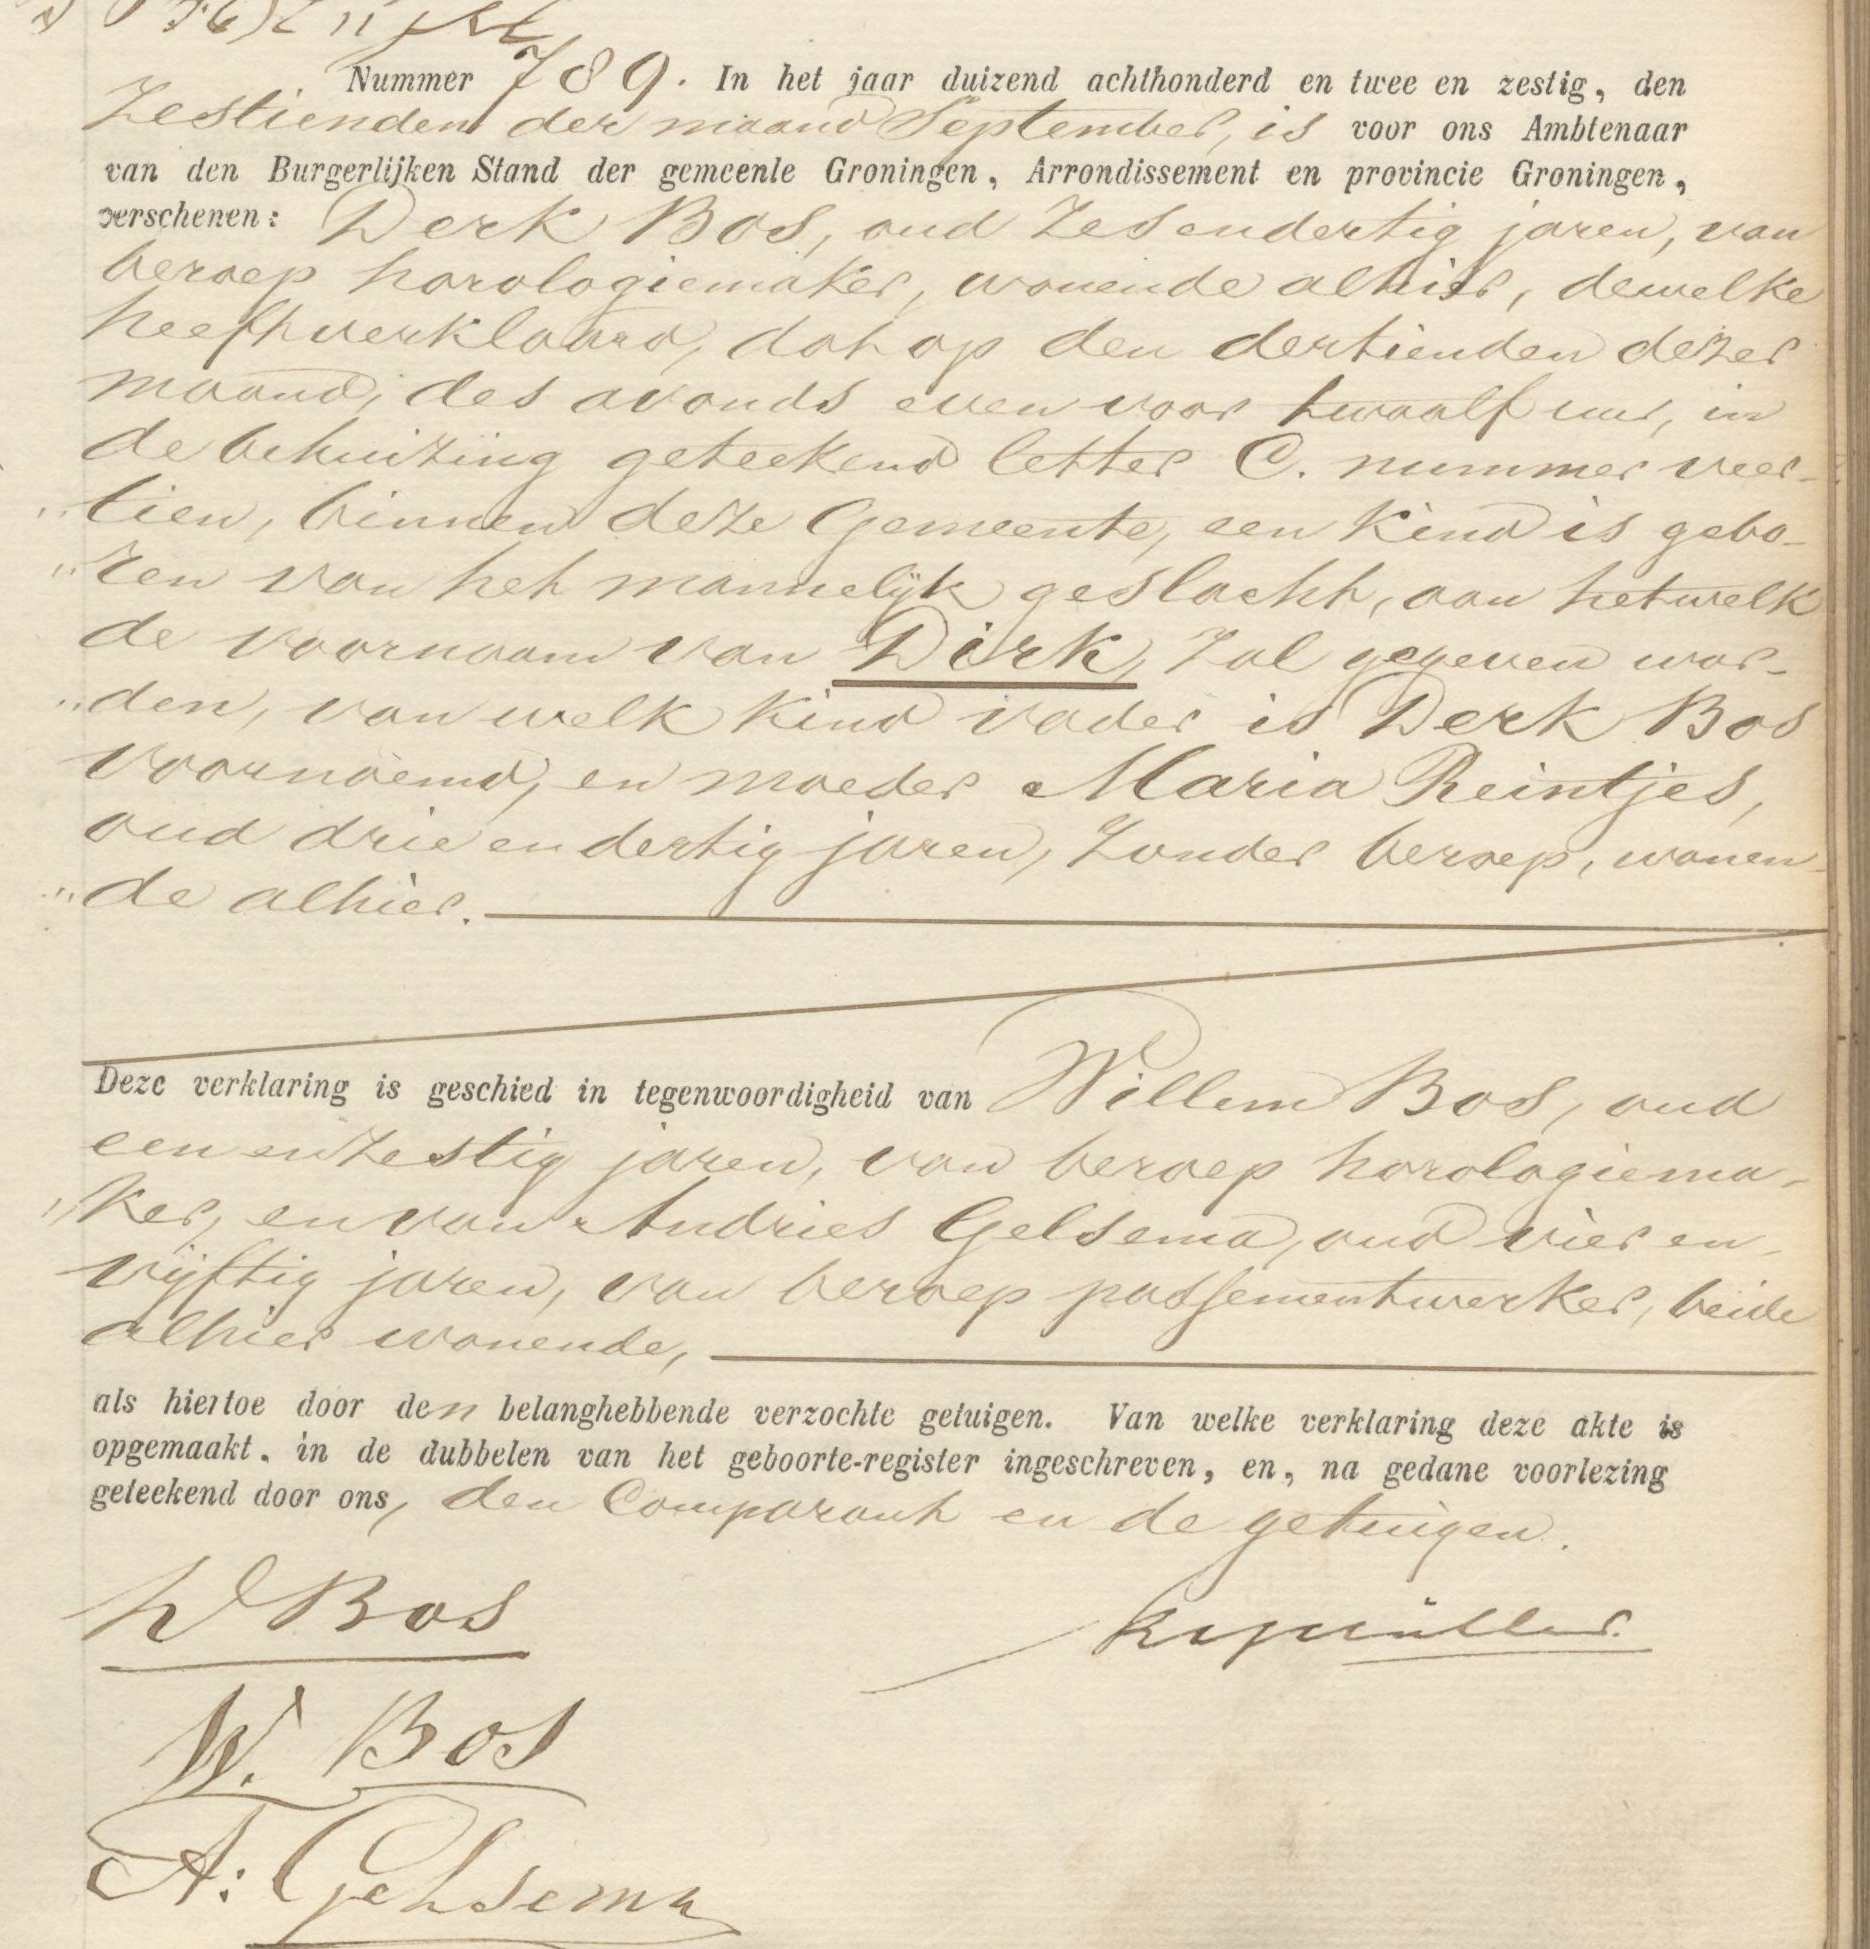 Nummer 789. In het jaar duizend achthonderd en twee en zestig, den
Zestienden der maand September, is voor ons Ambtenaar
van den Burgerlijken Stand der gemeente Groningen, Arrondissement en provincie Groningen,
verschenen: Derk Bos, oud zesendertig jaren, van
beroep horologiemaker, wonende alhier, dewelke
heeft verklaard, dat op den dertienden dezer
maand, des avonds even voor twaalf uur, in
de behuizing geteekend letter C. nummer veer-
"tien, binnen deze Gemeente, een kind is gebo-
"ren van het mannelijk geslacht, aan hetwelk
de voornaam van Dirk, zal gegeven wor-
"den, van welk kind vader is Derk Bos
voornoemd, en moeder Maria Reintjes,
oud drie en dertig jaren, zonder beroep, wonen-
"de alhier.
Deze verklaring is geschied in tegenwoordigheid van Willem Bos, oud
een en zestig jaren, van beroep horologiema-
"ker, en van Andries Gelsema, oud vier en-
vijftig jaren, van beroep passementwerker, beide
alhier wonende,
als hiertoe door den belanghebbende verzochte getuigen. Van welke verklaring deze akte is
opgemaakt, in de dubbelen van het geboorte-register ingeschreven, en, na gedane voorlezing
geteekend door ons, den Comparant en de getuigen.
D Bos
W. Bos
A: Gelsema